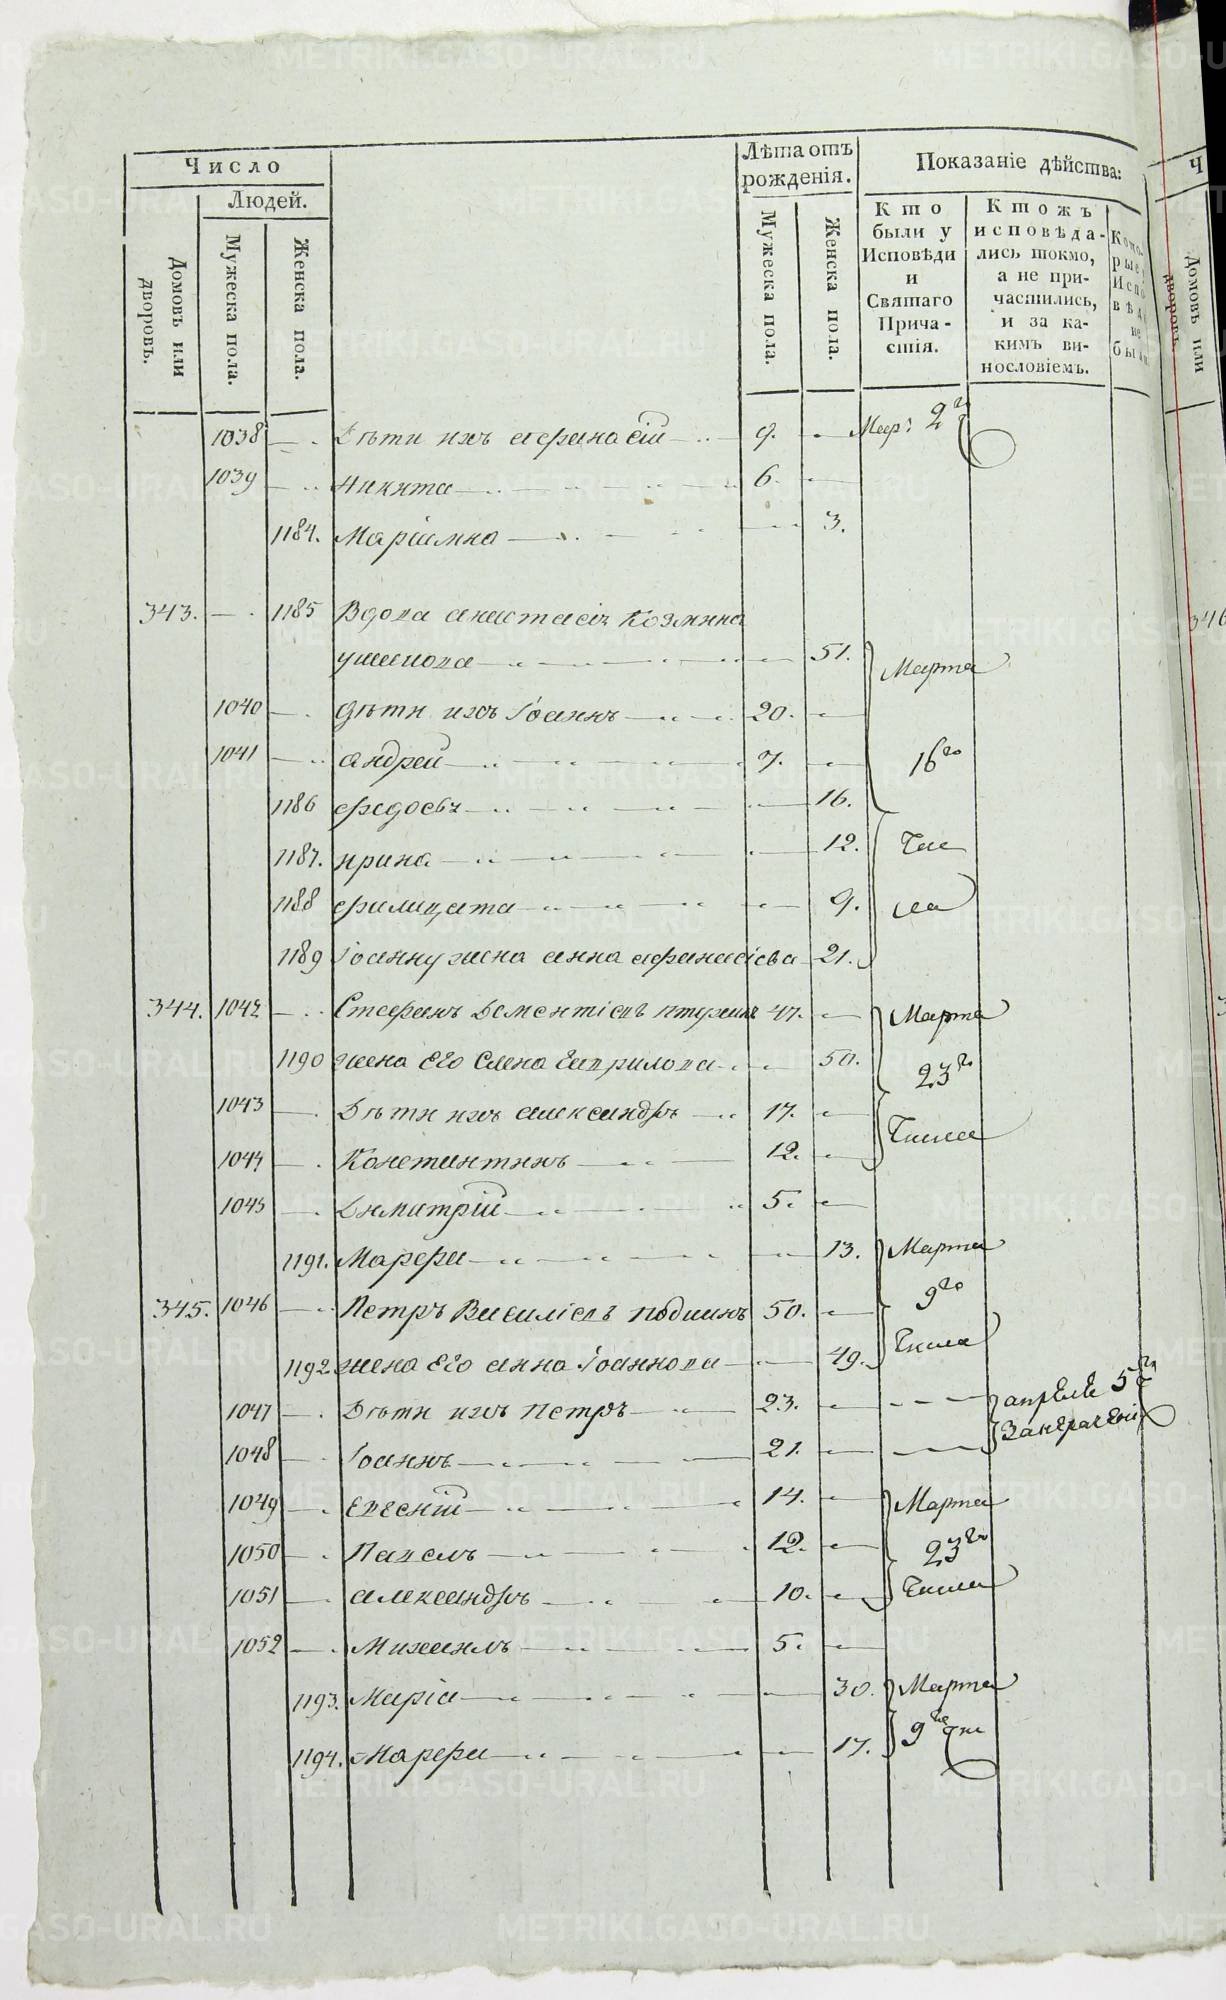 Число
Людей.
Домовъ или дворовъ.
Мужеска пола.
Женска пола.
Лѣта отъ рожденія.
Мужеска пола.
Женска пола.
Показаніе дѣйства:
Кто были у Исповѣди и Святаго Прича-стія.
Ктожъ исповѣда-лись токмо, а не при-частились, и за ка-кимъ ви-нословіемъ.
1038 Дѣти ихъ Афанасій 9. Мар: 2го
1039 Никита 6.
1184. Маріамна 3.
343. 1185 Вдова Анастасія Козмина
51. Марта
1040 Дѣти ихъ Іоаннъ 20.
1041 Андрей 7. 16го
1186 Федосья 16.
1187. Ирина 12. Чис
1188 Филицата 9. ла
1189 Іоанну жена Анна Афанасіева 21.
344. 1042 Стефанъ Дементіевъ 47. Марта
1190 жена Его Елена Гаврилова 50. 23го
1043 Дѣти ихъ Александръ 17. Числа
1044 Константинъ 12.
1045 Димитрій 5.
1191. Марфа 13. Марта
345. 1046 Петръ Василіевъ 50. 9го
1192 жена Его Анна Іоаннова 49. Числа
1047 Дѣти ихъ Петръ 23. Апрѣля 5го
1048 Іоаннъ 21.
1049 Евгеній 14. Марта
1050 Павелъ 12. 23го
1051 Александръ 10. Числа
1052 Михаилъ 5.
1193. Марія 30. Марта
1194. Марфа 17. 9го
Домовъ или дворовъ.
346
METRIKI.GASO-URAL.RU